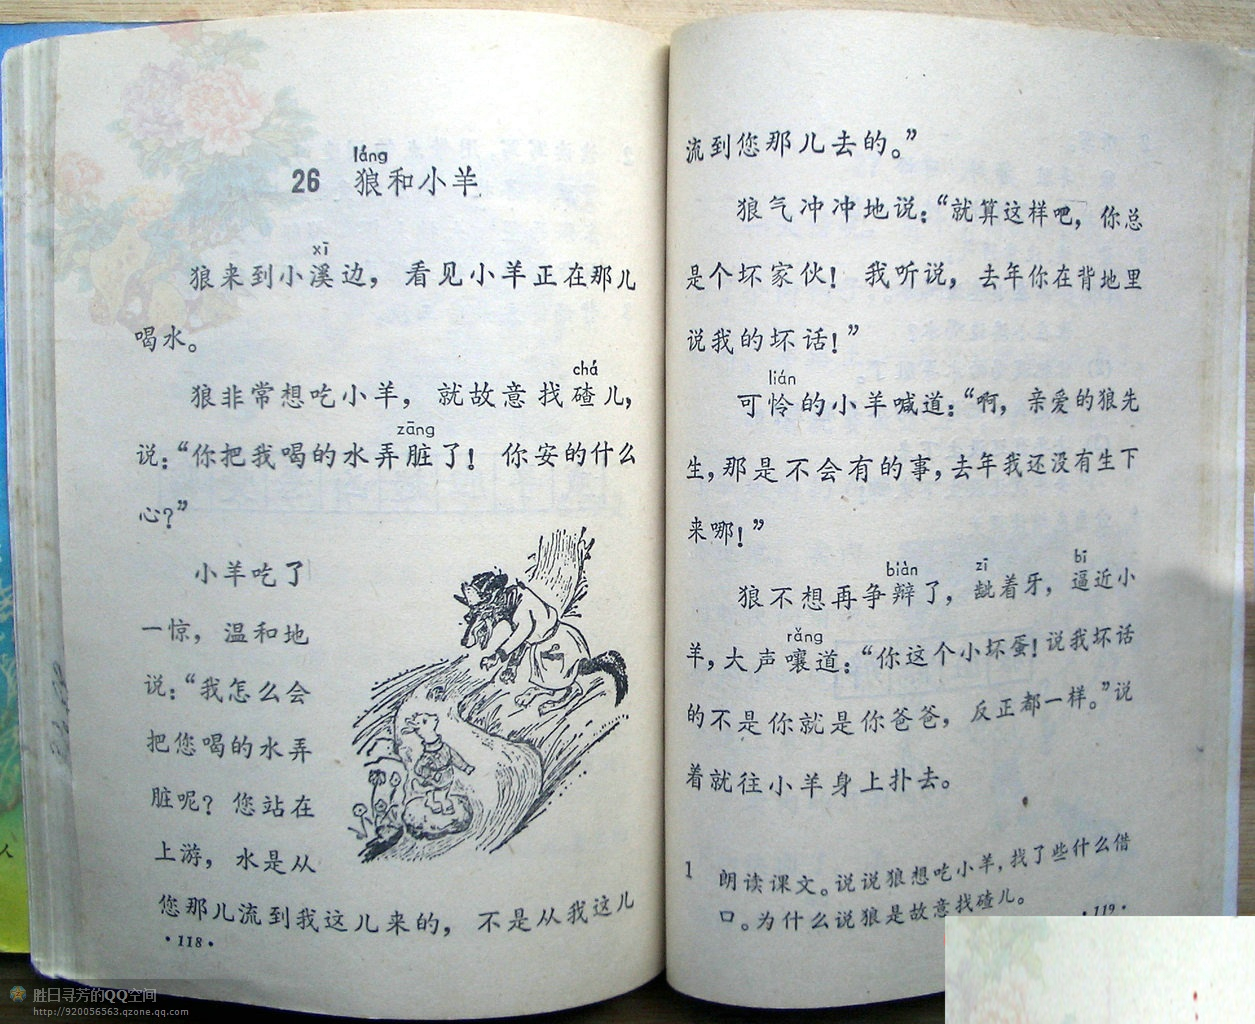 láng
26 狼和小羊
xī
狼来到小溪边，看见小羊正在那儿
喝水。
chá
狼非常想吃小羊，就故意找碴儿，
zāng
说：“你把我喝的水弄脏了！你安的什么
心？”
小羊吃了
一惊，温和地
说：“我怎么会
把您喝的水弄
脏呢？您站在
上游，水是从
您那儿流到我这儿来的，不是从我这儿
·118·
流到您那儿去的。”
狼气冲冲地说：“就算这样吧，你总
是个坏家伙！我听说，去年你在背地里
说我的坏话！”
lián
可怜的小羊喊道：“啊，亲爱的狼先
生，那是不会有的事，去年我还没有生下
来哪！”
biàn zī bī
狼不想再争辩了，龇着牙，逼近小
rǎng
羊，大声嚷道：“你这个小坏蛋！说我坏话
的不是你就是你爸爸，反正都一样。”说
着就往小羊身上扑去。
1 朗读课文。说说狼想吃小羊，找了些什么借
口。为什么说狼是故意找碴儿。
·119·
人
胜日寻芳的QQ空间
http://920056563.qzone.qq.com